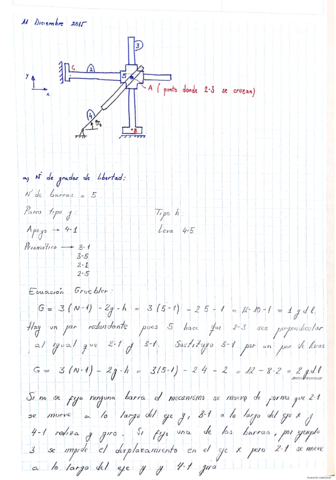 11 Diciembre 2015
3
C
2
5
y
x
A ( punto donde 2-3 se cruzan)
4
B
a) Nº de grados de libertad:
Nº de barras = 5
Pares tipo j:
Tipo h:
Apoyo → 4-1
Leva 4-5
Prismático → 3-1
3-5
2-1
2-5
Ecuación Gruebler:
G = 3(N-1) - 2j - h = 3(5-1) - 2·5 - 1 = 12-10-1 = 1 gdl.
Hay un par redundante pues 5 hace que 2-3 sea perpendicular
al igual que 2-1 y 3-1. Sustituyo 3-1 por un par de leva
G = 3(N-1) - 2j - h = 3(5-1) - 2·4 - 2 = 12-8-2 = 2 gdl
Si no se fija ninguna barra el mecanismo se mueve de forma que 2-1
se mueve a lo largo del eje y, 3-1 a lo largo del eje x y
4-1 realiza y giro. Si fijo una de las barras, por ejemplo
3 se impide el desplazamiento en el eje x pero 2-1 se mueve
a lo largo del eje y y 4-1 gira